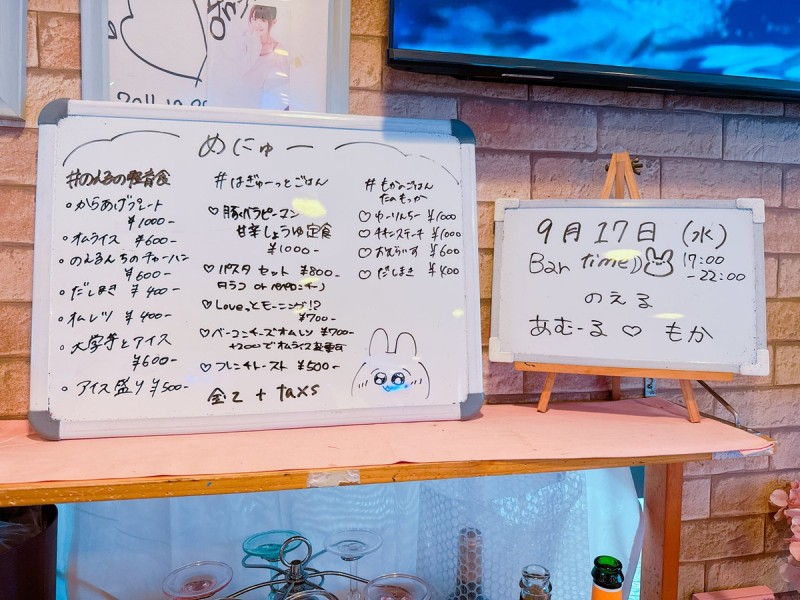 2011.10.
めにゅー
#のえるの軽食
・からあげプレート
¥1000-
・オムライス ¥600-
・のえるんちのチャーハン
¥600-
・だしまき ¥400-
・オムレツ ¥400-
・大学芋とアイス
¥600-
・アイス盛り ¥500-
#はぎゅーっとごはん
♡豚バラピーマン
甘辛しょうゆ定食
¥1000-
♡パスタ セット ¥800-
(タラコ or ペペロンチーノ)
♡Love♡っとモーニング!?
¥700-
♡ベーコンチーズオムレツ ¥700-
+200でオムライス
♡フレンチトースト ¥500-
全て + taxs
#もかのごはん
たのもっか
♡ゆーりんちー ¥1000
♡チキンステーキ ¥1000
♡おむらいす ¥600
♡だしまき ¥400
9月17日 (水)
Bar time♪
17:00
-22:00
のえる
あむーる ♡ もか